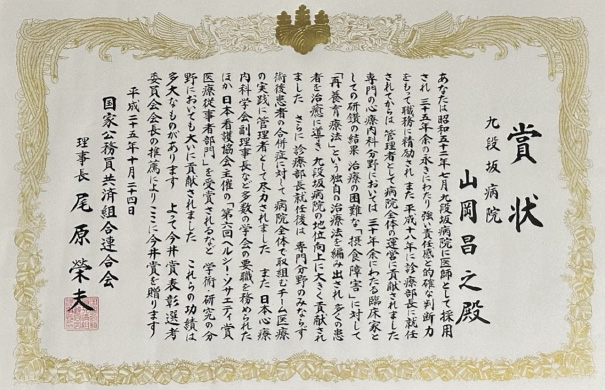 賞状
九段坂病院
山岡昌之殿
あなたは昭和五十二年七月九段坂病院に医師として採用
され 三十五年余の永きにわたり強い責任感と的確な判断力
をもって職務に精励され また平成十八年に診療部長に就任
されてからは 管理者として病院全体の運営に貢献されました
専門の心療内科分野においては 三十年余にわたる臨床家と
しての研鑽の結果 治療の困難な「摂食障害」に対して
「再養育療法」という独自の治療法を編み出され 多くの患
者を治癒に導き 九段坂病院の地位向上に大きく貢献され
ました さらに診療部長就任後は 専門分野のみならず
術後患者の合併症に対して 病院全体で取組むチーム医療
の実践に管理者として尽力されました また 日本心療
内科学会副理事長など多数の学会の要職を務められた
ほか 日本看護協会主催の「第六回ヘルシー・ソサエティ賞
医療従事者部門」を受賞されるなど 学術・研究の分
野においても大いに貢献されました これらの功績は
多大なものがあります よって今井賞表彰選考
委員会会長の推薦によりここに今井賞を贈ります
平成二十五年十月二十四日
国家公務員共済組合連合会
理事長 尾原榮夫